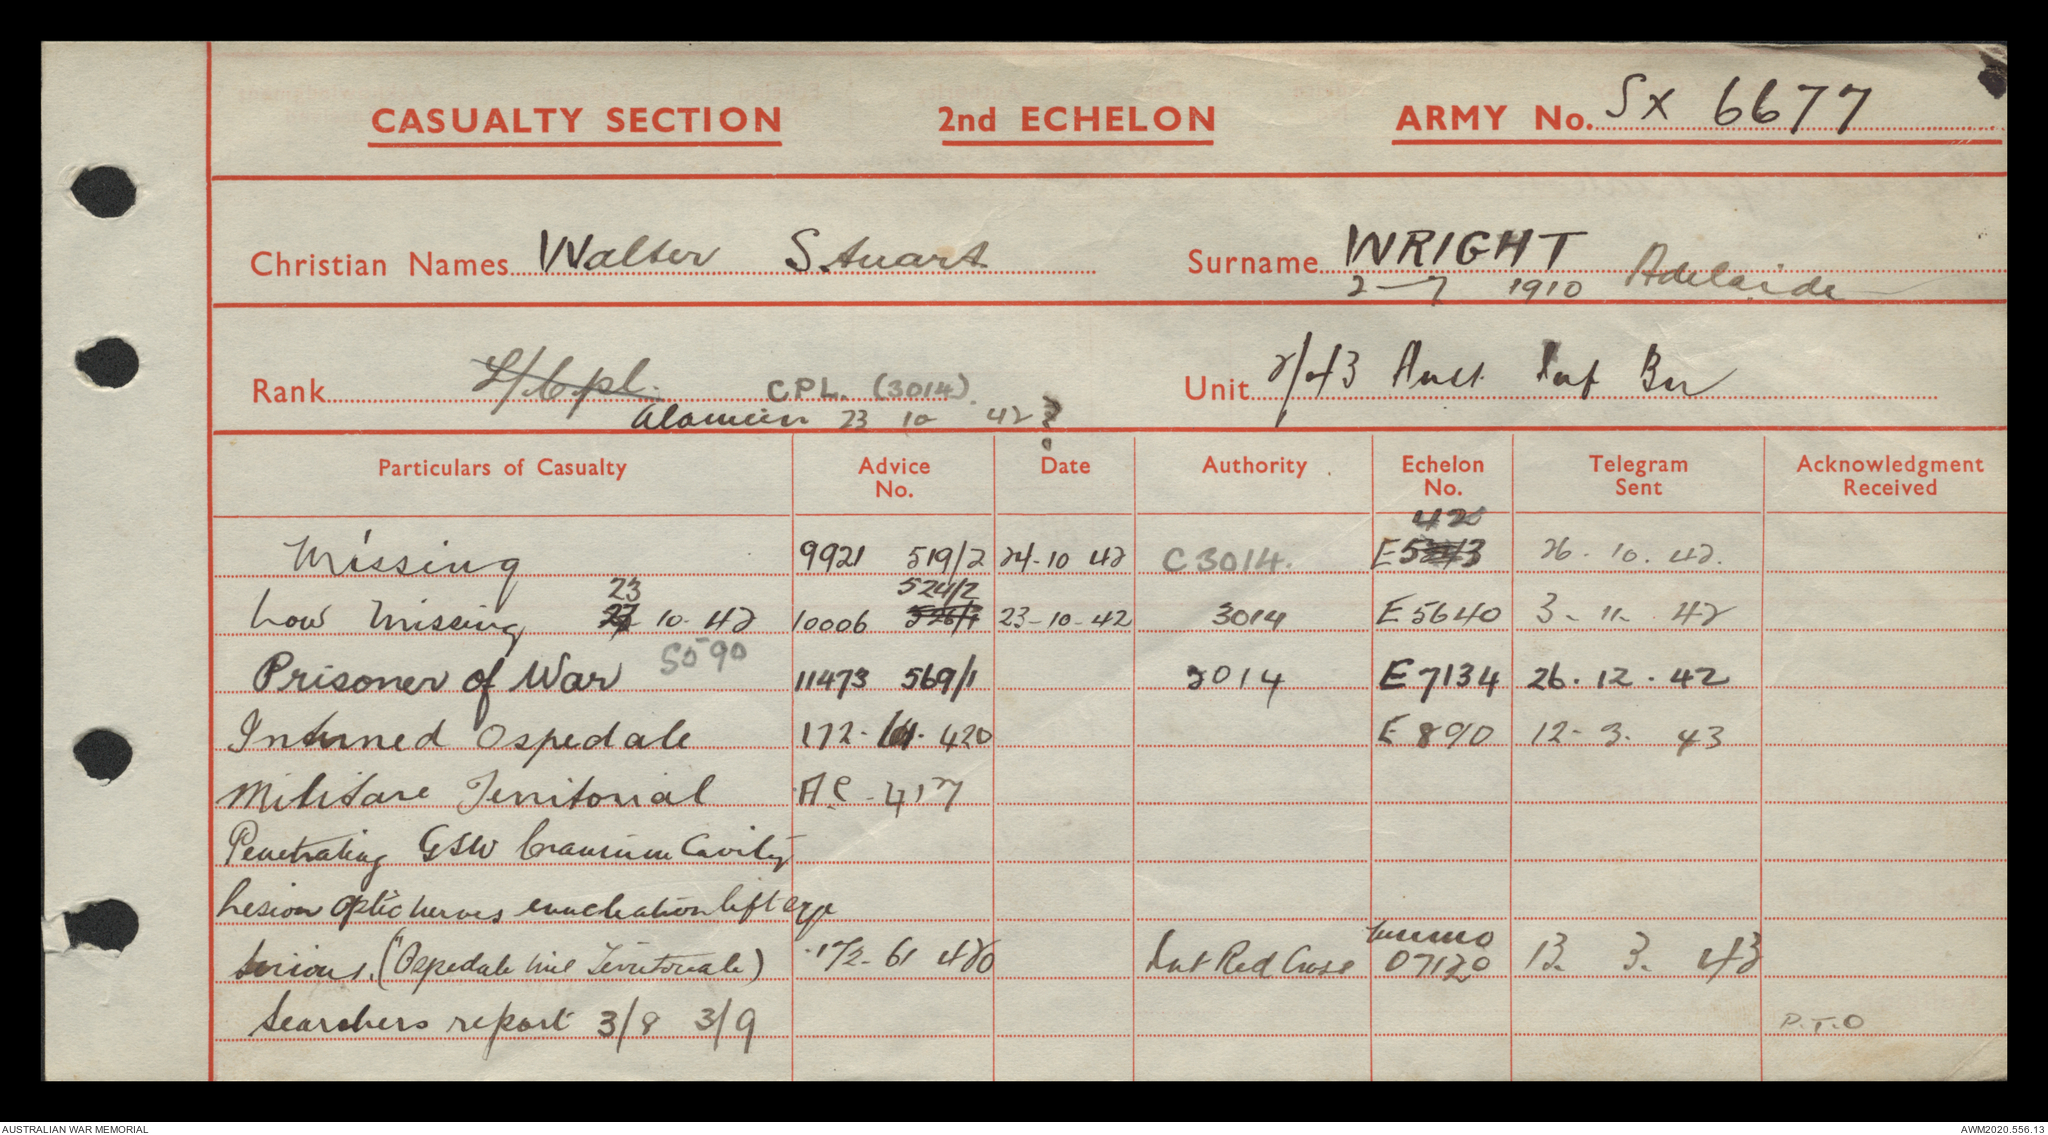 CASUALTY SECTION 2nd ECHELON ARMY No. SX 6677
Christian Names Walter Stuart Surname WRIGHT
2-7 1910 Adelaide
Rank L/Cpl. CPL. (3014). Unit 2/43 Aust Inf Bn
Alamein 23 10 42 ?
Particulars of Casualty Advice No. Date Authority Echelon No. Telegram Sent Acknowledgment Received
420
Missing 9921 519/2 24-10 42 C3014. E 26. 10. 42.
23 524/2
Now Missing 10 - 42 10006 23-10-42 3014 E5640 3- 11- 42
5090
Prisoner of War 11473 569/1 3014 E7134 26.12.42
Interned Ospedale 172. 61. 420 E890 12- 3. 43
Militare Territorial AC - 417
Penetrating GSW Cranium Cavity
Lesion optic nerves enucleation left eye
serious. ("Ospedale Mil Territoriale) 172- 61 420 Int Red Cross 07120 13. 3. 43
Searchers report 3/8 3/9
P.T.O
AUSTRALIAN WAR MEMORIAL AWM2020.556.13